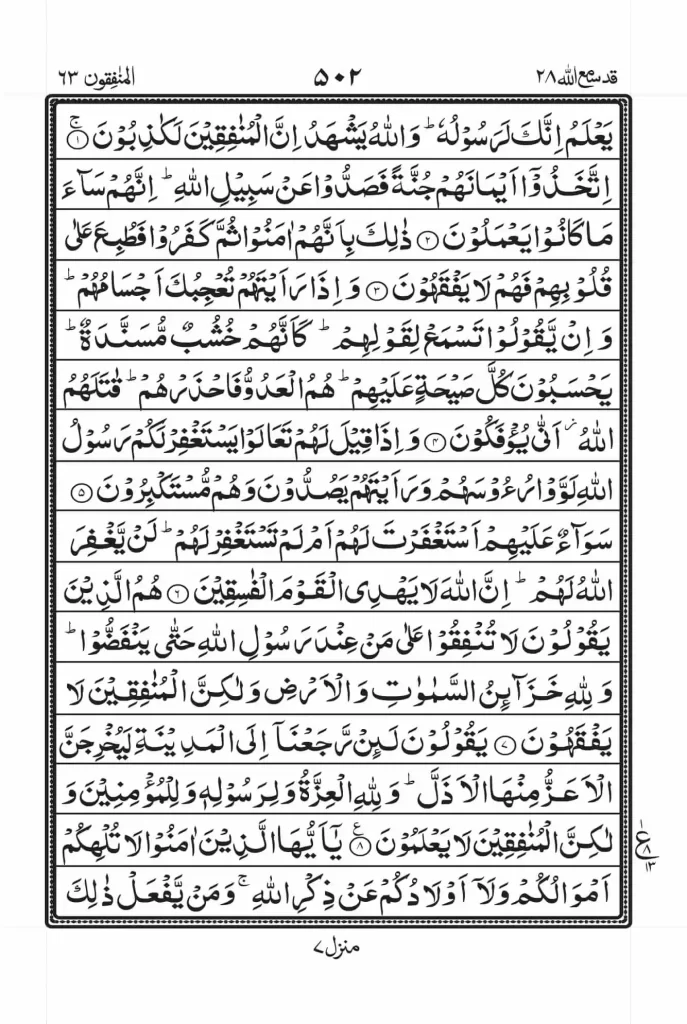 قد سمع الله ٢٨ ۵۰۲ المنٰفقون ٦٣
يَعْلَمُ اِنَّكَ لَرَسُوْلُهٗ ؕ وَاللّٰهُ يَشْهَدُ اِنَّ الْمُنٰفِقِيْنَ لَكٰذِبُوْنَ ۚ ﴿۱﴾
اِتَّخَذُوْۤا اَيْمَانَهُمْ جُنَّةً فَصَدُّوْا عَنْ سَبِيْلِ اللّٰهِ ؕ اِنَّهُمْ سَآءَ
مَا كَانُوْا يَعْمَلُوْنَ ﴿۲﴾ ذٰلِكَ بِاَنَّهُمْ اٰمَنُوْا ثُمَّ كَفَرُوْا فَطُبِعَ عَلٰى
قُلُوْبِهِمْ فَهُمْ لَا يَفْقَهُوْنَ ﴿۳﴾ وَ اِذَا رَاَيْتَهُمْ تُعْجِبُكَ اَجْسَامُهُمْ ؕ
وَ اِنْ يَّقُوْلُوْا تَسْمَعْ لِقَوْلِهِمْ ؕ كَاَنَّهُمْ خُشُبٌ مُّسَنَّدَةٌ ؕ
يَحْسَبُوْنَ كُلَّ صَيْحَةٍ عَلَيْهِمْ ؕ هُمُ الْعَدُوُّ فَاحْذَرْهُمْ ؕ قٰتَلَهُمُ
اللّٰهُ ؗ اَنّٰى يُؤْفَكُوْنَ ﴿۴﴾ وَ اِذَا قِيْلَ لَهُمْ تَعَالَوْا يَسْتَغْفِرْ لَكُمْ رَسُوْلُ
اللّٰهِ لَوَّوْا رُءُوْسَهُمْ وَ رَاَيْتَهُمْ يَصُدُّوْنَ وَ هُمْ مُّسْتَكْبِرُوْنَ ﴿۵﴾
سَوَآءٌ عَلَيْهِمْ اَسْتَغْفَرْتَ لَهُمْ اَمْ لَمْ تَسْتَغْفِرْ لَهُمْ ؕ لَنْ يَّغْفِرَ
اللّٰهُ لَهُمْ ؕ اِنَّ اللّٰهَ لَا يَهْدِى الْقَوْمَ الْفٰسِقِيْنَ ﴿۶﴾ هُمُ الَّذِيْنَ
يَقُوْلُوْنَ لَا تُنْفِقُوْا عَلٰى مَنْ عِنْدَ رَسُوْلِ اللّٰهِ حَتّٰى يَنْفَضُّوْا ؕ
وَ لِلّٰهِ خَزَآئِنُ السَّمٰوٰتِ وَ الْاَرْضِ وَ لٰكِنَّ الْمُنٰفِقِيْنَ لَا
يَفْقَهُوْنَ ﴿۷﴾ يَقُوْلُوْنَ لَئِنْ رَّجَعْنَاۤ اِلَى الْمَدِيْنَةِ لَيُخْرِجَنَّ
الْاَعَزُّ مِنْهَا الْاَذَلَّ ؕ وَ لِلّٰهِ الْعِزَّةُ وَ لِرَسُوْلِهٖ وَ لِلْمُؤْمِنِيْنَ وَ
لٰكِنَّ الْمُنٰفِقِيْنَ لَا يَعْلَمُوْنَ ﴿۸﴾ يٰۤاَيُّهَا الَّذِيْنَ اٰمَنُوْا لَا تُلْهِكُمْ
ع ٨ ١٣
اَمْوَالُكُمْ وَلَاۤ اَوْلَادُكُمْ عَنْ ذِكْرِ اللّٰهِ ۚ وَ مَنْ يَّفْعَلْ ذٰلِكَ
منزل ٧